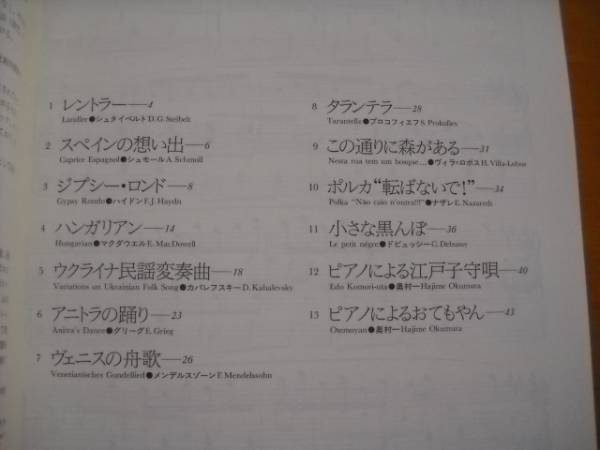 1 レントラー—4
Landler●シュタイベルトD.G.Steibelt
2 スペインの想い出—6
Caprice Espagnol●シュモールA.Schmoll
3 ジプシー・ロンド—8
Gypsy Rondo●ハイドンF.J.Haydn
4 ハンガリアン—14
Hungarian●マクダウエルE.MacDowell
5 ウクライナ民謡変奏曲—18
Variations on Ukrainian Folk Song●カバレフスキーD.Kabalevsky
6 アニトラの踊り—23
Anitra's Dance●グリーグE.Grieg
7 ヴェニスの舟歌—26
Venetianisches Gondellied●メンデルスゾーンF.Mendelssohn
8 タランテラ—28
Tarantelle●プロコフィエフS.Prokofiev
9 この通りに森がある—31
Nesta rua tem um bosque…●ヴィラ・ロボスH.Villa-Lobos
10 ポルカ“転ばないで！”—34
Polka “Não caio n'outra!!!”●ナザレE.Nazareth
11 小さな黒んぼ—36
Le petit nègre●ドビュッシーC.Debussy
12 ピアノによる江戸子守唄—40
Edo Komori-uta●奥村一Hajime Okumura
13 ピアノによるおてもやん—43
Otemoyan●奥村一Hajime Okumura